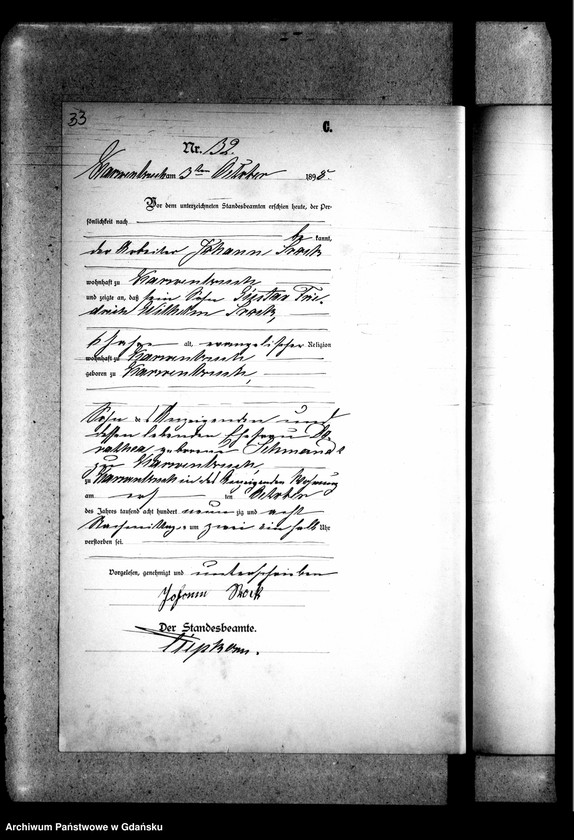 33
C.
Nr. 32.
Karwenbruch am 3ten October 1898.
Vor dem unterzeichneten Standesbeamten erschien heute, der Per-
sönlichkeit nach
be kannt,
der Arbeiter Johann
wohnhaft zu Karwenbruch
und zeigte an, daß sein Sohn Gustav Frie-
drich Wilhelm
6 Jahre alt, evangelischer Religion
wohnhaft zu Karwenbruch
geboren zu Karwenbruch,
Sohn des Anzeigenden und
dessen lebenden Ehefrau Do-
rathea geborene
zu Karwenbruch,
zu Karwenbruch in des Anzeigenden Wohnung
am ten October
des Jahres tausend acht hundert neun zig und acht
Nachmittags um zwei ein halb Uhr
verstorben sei.
Vorgelesen, genehmigt und unterschrieben
Johann
Der Standesbeamte.